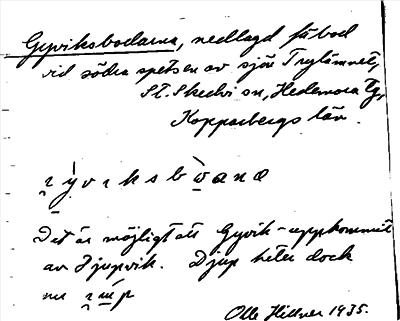 Gyviksbodarna, nedlagd fäbod
vid södra spetsen av sjön Trytämnet,
St. Skedvi sn, Hedemora tg,
Kopparbergs län.
Det är möjligt att Gyvik- uppkommit
av Djupvik. Djup heter dock
nu
Olle Hillver 1935.